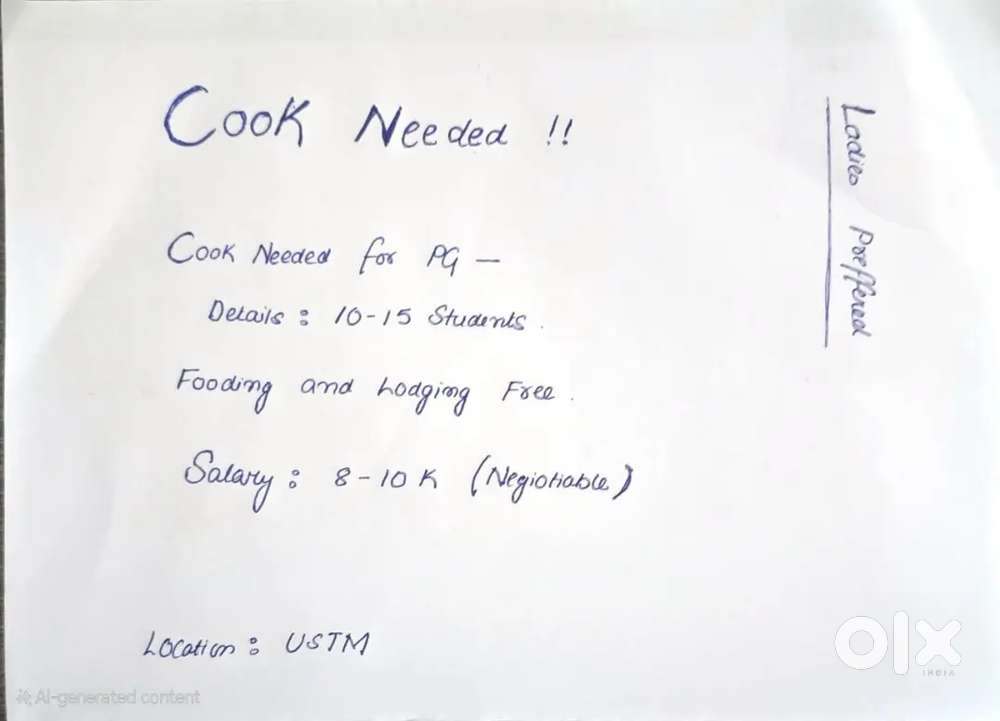 Cook Needed !!
Ladies Preffered
Cook Needed for PG —
Details : 10-15 Students.
Fooding and Lodging Free.
Salary : 8-10 K (Negiotiable)
Location : USTM
olx
INDIA
AI-generated content